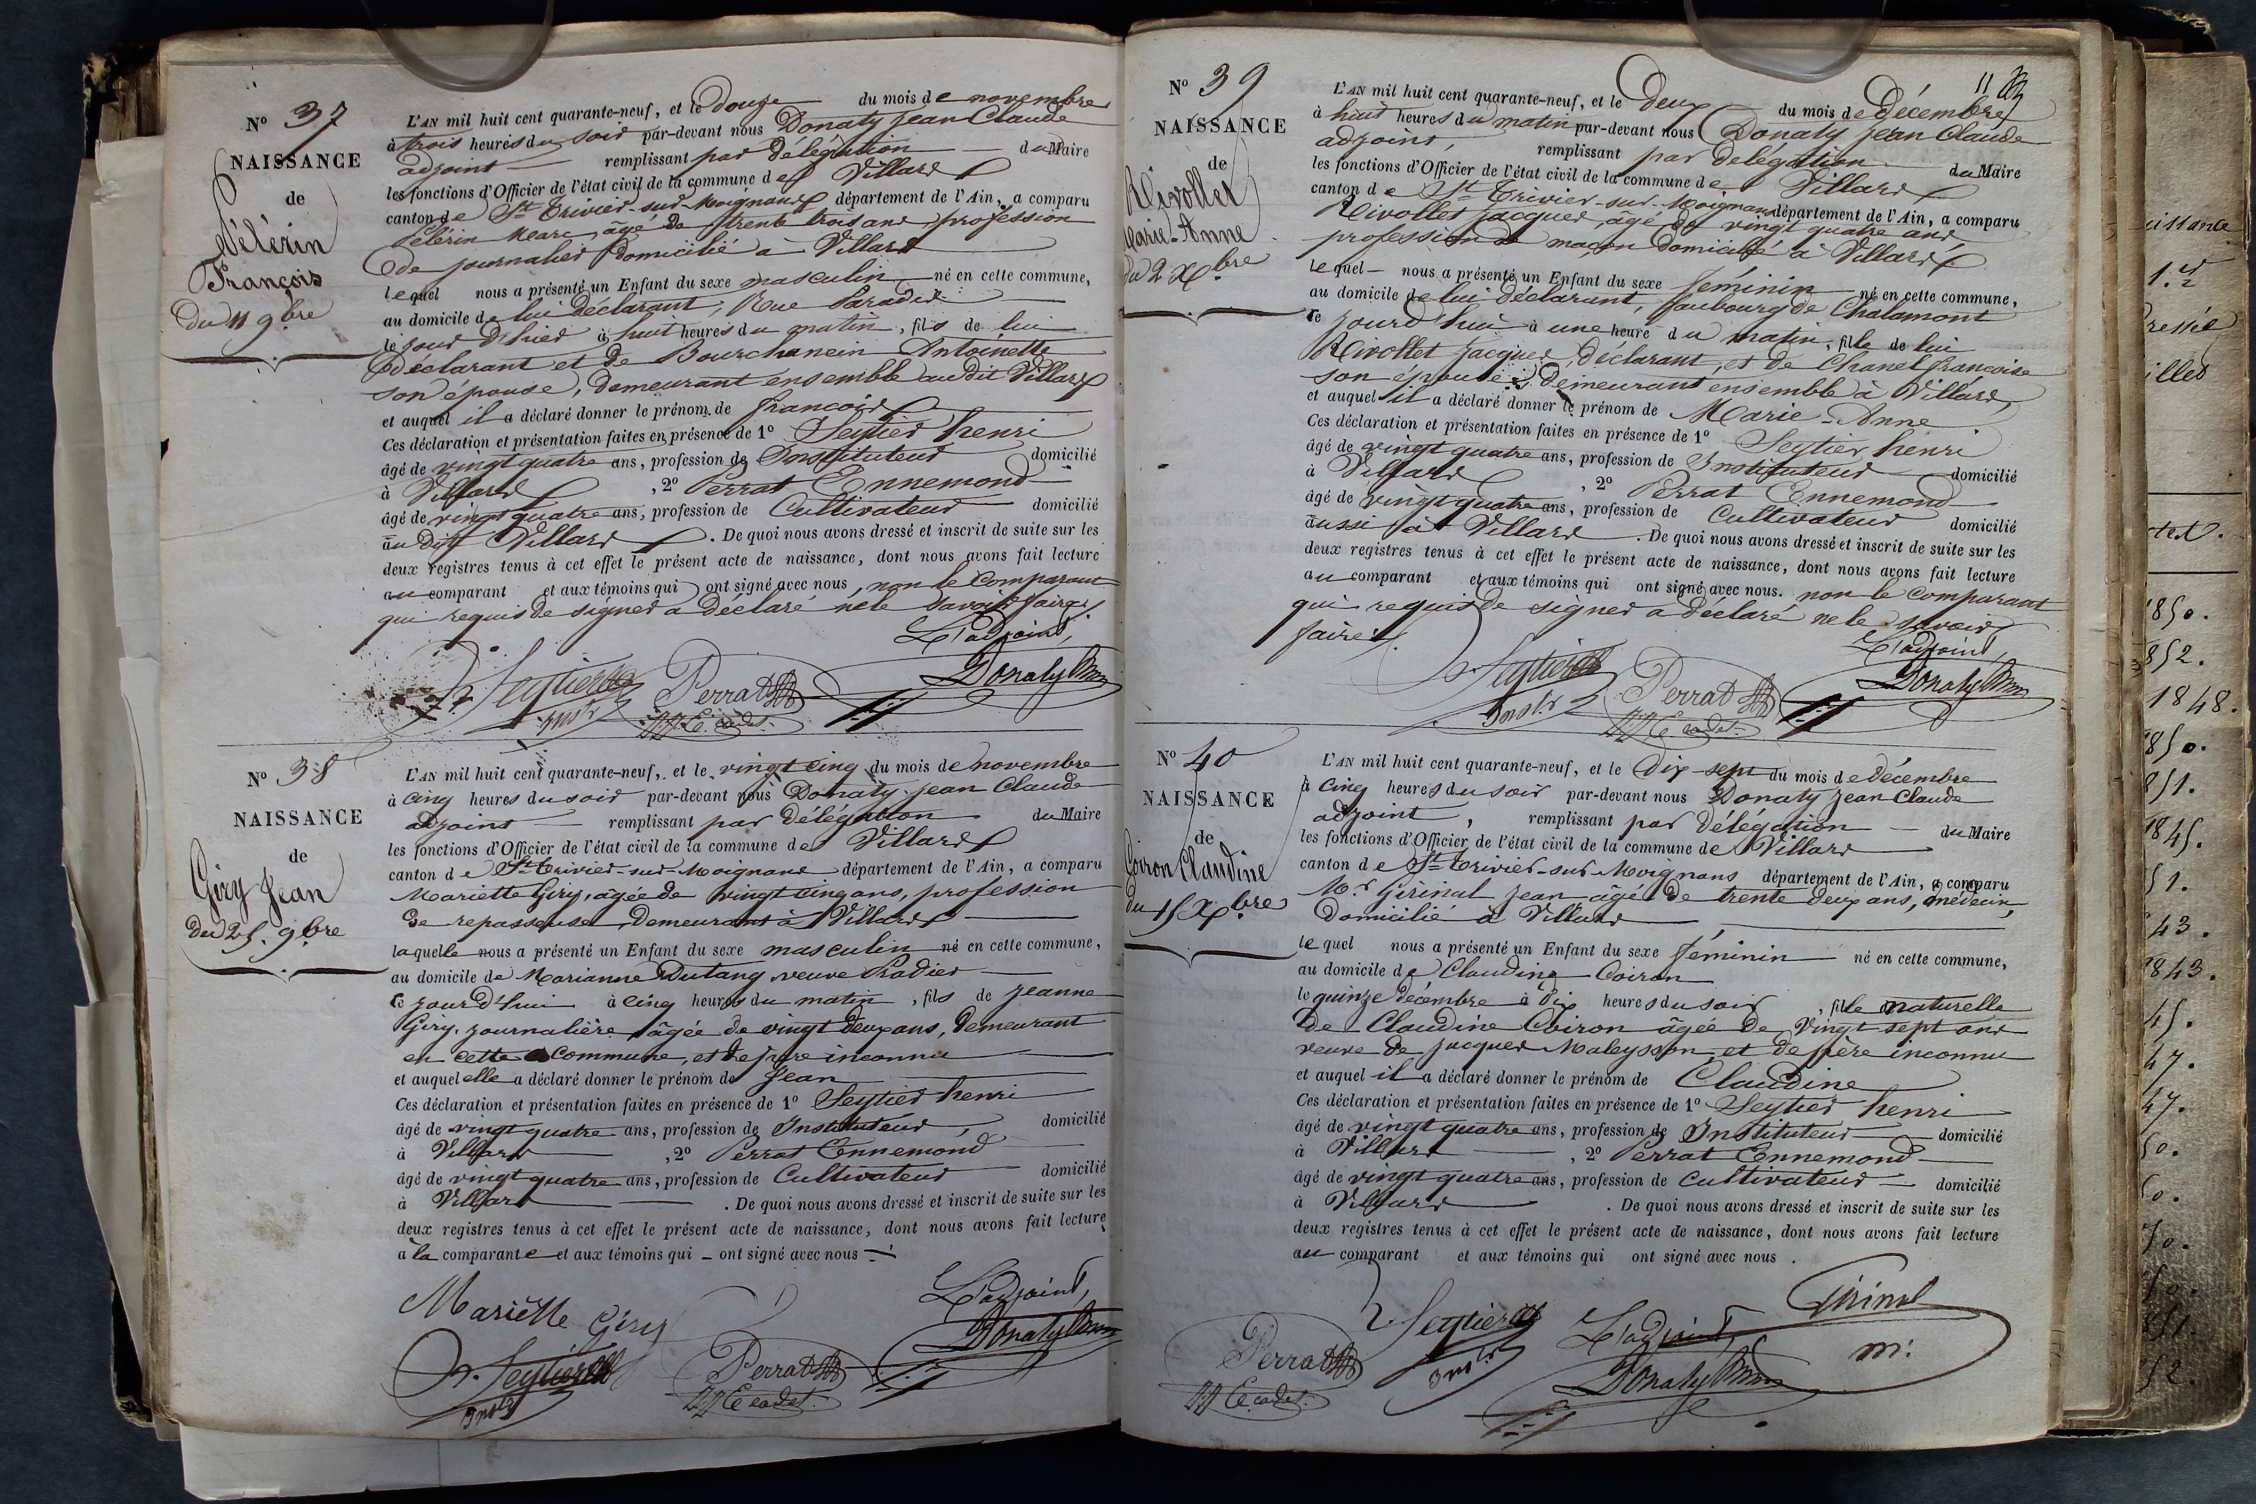 N° 37
NAISSANCE
de
Pélérin
François
du 11 9.bre
L'AN mil huit cent quarante-neuf, et le douze du mois de novembre
à trois heures du soir par-devant nous Donaty Jean Claude
adjoint remplissant par délégation du Maire
les fonctions d'Officier de l'état civil de la commune de Villars
canton de St Trivier-sur-Moignans département de l'Ain, a comparu
Pélérin Marc, âgé de trente trois ans, profession
de journalier domicilié à Villars
lequel nous a présenté un Enfant du sexe masculin né en cette commune,
au domicile de lui déclarant, Rue Paradis
le jour d'hier à huit heures du matin, fils de lui
déclarant et de Bourchanein Antoinette
son épouse, demeurant ensemble au dit Villars
et auquel il a déclaré donner le prénom de François
Ces déclaration et présentation faites en présence de 1° Seytier henri
âgé de vingt quatre ans, profession de Instituteur domicilié
à Villars, 2° Perrat Ennemond
âgé de vingt quatre ans, profession de Cultivateur domicilié
au dit Villars. De quoi nous avons dressé et inscrit de suite sur les
deux registres tenus à cet effet le présent acte de naissance, dont nous avons fait lecture
au comparant et aux témoins qui ont signé avec nous, non le comparant
qui requis de signer a déclaré ne le savoir faire.
L'adjoint,
Seytier Perrat Donaty
Inst.r E. cadet.
N° 38
NAISSANCE
de
Giry Jean
du 25. 9.bre
L'AN mil huit cent quarante-neuf, et le vingt cinq du mois de novembre
à cinq heures du soir par-devant nous Donaty Jean Claude
adjoint remplissant par délégation du Maire
les fonctions d'Officier de l'état civil de la commune de Villars
canton de St Trivier-sur-Moignans département de l'Ain, a comparu
Mariette Giry, âgée de vingt cinq ans, profession
de repasseuse, demeurant à Villars
laquelle nous a présenté un Enfant du sexe masculin né en cette commune,
au domicile de Marianne Dutang, veuve Pradier
le jour d'hui à cinq heures du matin, fils de Jeanne
Giry, journalière âgée de vingt deux ans, demeurant
en cette commune, et de père inconnu
et auquel elle a déclaré donner le prénom de Jean
Ces déclaration et présentation faites en présence de 1° Seytier henri
âgé de vingt quatre ans, profession de Instituteur, domicilié
à Villars, 2° Perrat Ennemond
âgé de vingt quatre ans, profession de Cultivateur domicilié
à Villars. De quoi nous avons dressé et inscrit de suite sur les
deux registres tenus à cet effet le présent acte de naissance, dont nous avons fait lecture
à la comparante et aux témoins qui ont signé avec nous
L'adjoint,
Mariette Giry
Seytier Perrat Donaty
Inst.r E cadet.
11
N° 39
NAISSANCE
de
Rivollet
Marie-Anne
du 2 X.bre
L'AN mil huit cent quarante-neuf, et le deux du mois de décembre
à huit heures du matin par-devant nous Donaty Jean Claude
adjoint, remplissant par délégation du Maire
les fonctions d'Officier de l'état civil de la commune de Villars
canton de St Trivier-sur-Moignans département de l'Ain, a comparu
Rivollet Jacques, âgé de vingt quatre ans,
profession de maçon domicilié à Villars
lequel nous a présenté un Enfant du sexe féminin né en cette commune,
au domicile de lui déclarant, faubourg de Chalamont
le jourd'hui à une heure du matin, fille de lui
Rivollet Jacques, déclarant, et de Chanel françoise
son épouse, demeurant ensemble à Villars,
et auquel il a déclaré donner le prénom de Marie-Anne
Ces déclaration et présentation faites en présence de 1° Seytier henri
âgé de vingt quatre ans, profession de Instituteur domicilié
à Villars, 2° Perrat Ennemond
âgé de vingt quatre ans, profession de Cultivateur domicilié
aussi à Villars. De quoi nous avons dressé et inscrit de suite sur les
deux registres tenus à cet effet le présent acte de naissance, dont nous avons fait lecture
au comparant et aux témoins qui ont signé avec nous. non le comparant
qui requis de signer a déclaré ne le savoir
faire.
L'adjoint,
Seytier Perrat Donaty
Inst.r E cadet.
N° 40
NAISSANCE
de
Coiron Claudine
du 15 X.bre
L'AN mil huit cent quarante-neuf, et le dix-sept du mois de décembre
à cinq heures du soir par-devant nous Donaty Jean Claude
adjoint, remplissant par délégation du Maire
les fonctions d'Officier de l'état civil de la commune de Villars
canton de St Trivier-sur-Moignans département de l'Ain, a comparu
M.r Girinal Jean âgé de trente deux ans, médecin,
domicilié à Villars
lequel nous a présenté un Enfant du sexe féminin né en cette commune,
au domicile de Claudine Coiron
le quinze décembre à dix heures du soir, fille naturelle
de Claudine Coiron âgée de vingt sept ans
veuve de Jacques Maleysson, et de père inconnu
et auquel il a déclaré donner le prénom de Claudine
Ces déclaration et présentation faites en présence de 1° Seytier henri
âgé de vingt quatre ans, profession de Instituteur domicilié
à Villars, 2° Perrat Ennemond
âgé de vingt quatre ans, profession de cultivateur domicilié
à Villars. De quoi nous avons dressé et inscrit de suite sur les
deux registres tenus à cet effet le présent acte de naissance, dont nous avons fait lecture
au comparant et aux témoins qui ont signé avec nous.
Girinal
Seytier L'adjoint, m.
Perrat Inst.r Donaty
E. cadet.
1850.
852.
1848.
850.
851.
1845.
51.
43.
843.
45.
47.
47.
50.